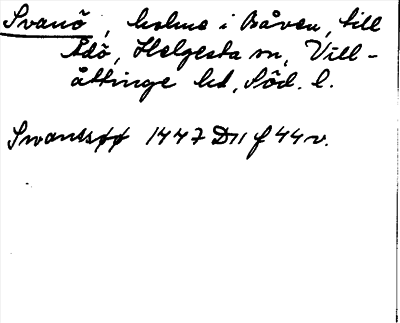 Svanö, holme i Båven, till
Ådö, Helgesta sn, Vill-
åttinge hd, Söd. l.
Swanesøø 1447 D11 f 44 v.